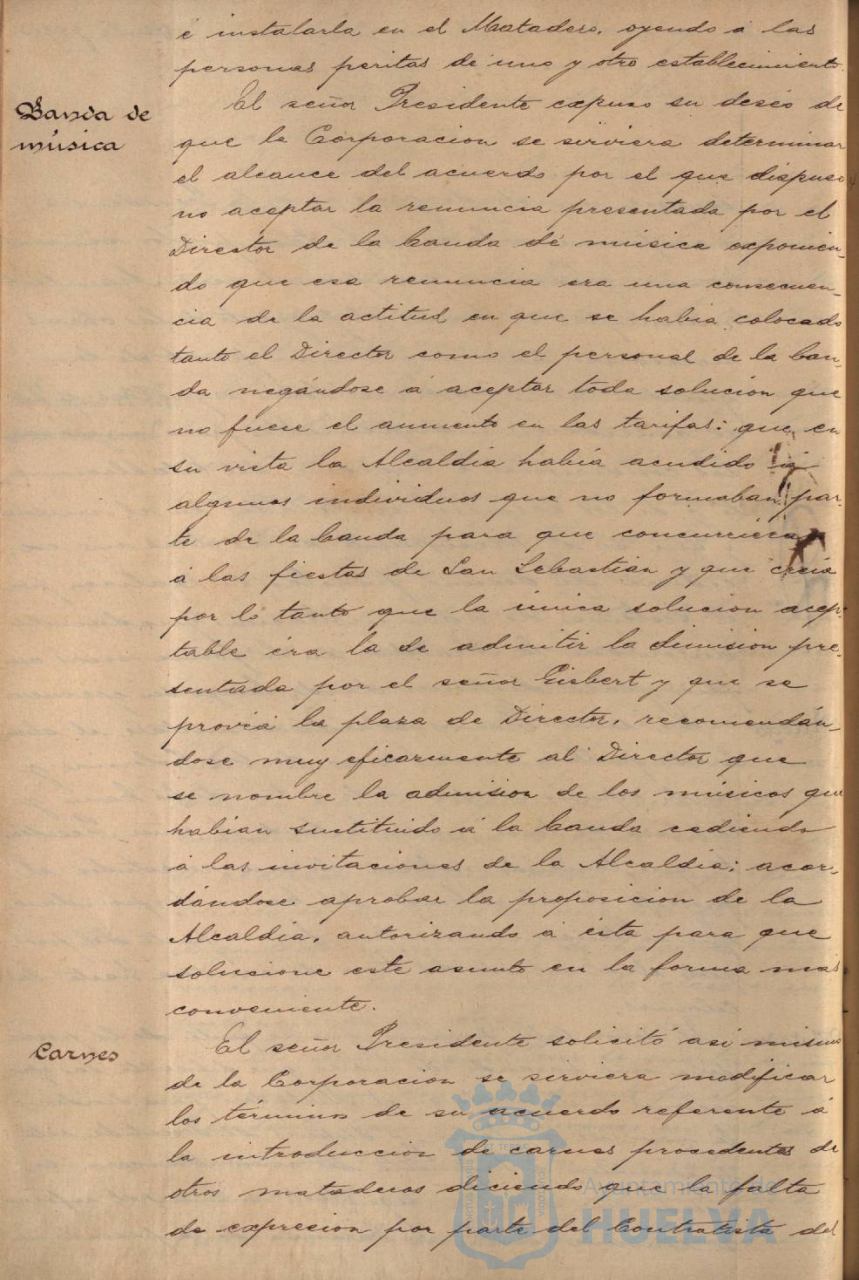 é instalarla en el Matadero, oyendo á las
personas peritas de uno y otro establecimiento.
Banda de
música
El señor Presidente expuso su deseo de
que la Corporacion se sirviera determinar
el alcance del acuerdo por el que dispuso
no aceptar la renuncia presentada por el
Director de la banda de música exponien-
do que esa renuncia era una consecuen-
cia de la actitud en que se habia colocado
tanto el Director como el personal de la ban-
da negándose á aceptar toda solucion que
no fuese el aumento en las tarifas: que en
su vista la Alcaldia habia acudido á
algunos individuos que no formaban par-
te de la banda para que concurrieran
á las fiestas de San Sebastian y que creia
por lo tanto que la única solucion acep-
table éra la de admitir la dimision pre-
sentada por el señor Gisbert y que se
provea la plaza de Director, recomendán-
dose muy eficazmente al Director que
se nombre la admision de los músicos que
habian sustituido á la banda cediendo
á las invitaciones de la Alcaldia; acor-
dándose aprobar la proposicion de la
Alcaldia, autorizando á ésta para que
solucione este asunto en la forma mas
conveniente.
Carnes
El señor Presidente solicitó asi mismo
de la Corporacion se sirviera modificar
los términos de su acuerdo referente á
la introduccion de carnes procedentes de
otros mataderos diciendo que la falta
de expresion por parte del Contratista del
Ayuntamiento de
HUELVA